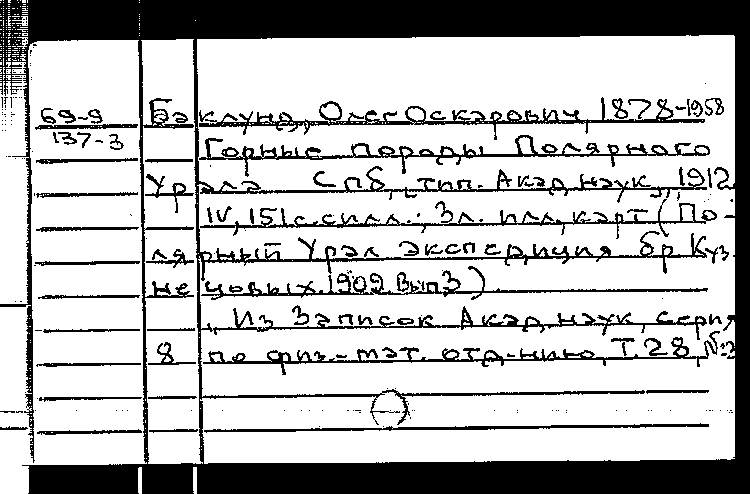 69-9 Баклунд, Олег Оскарович, 1878-1958
137-3 Горные породы Полярного
Урала Спб, тип. Акад. наук, 1912.
IV, 151 с. с илл.; 3 л. илл., карт (По-
лярный Урал экспедиция бр Куз-
нецовых 1909. Вып 3)
"Из Записок Акад. наук, серия
8 по физ.-мат. отд-нию, Т. 28, №3